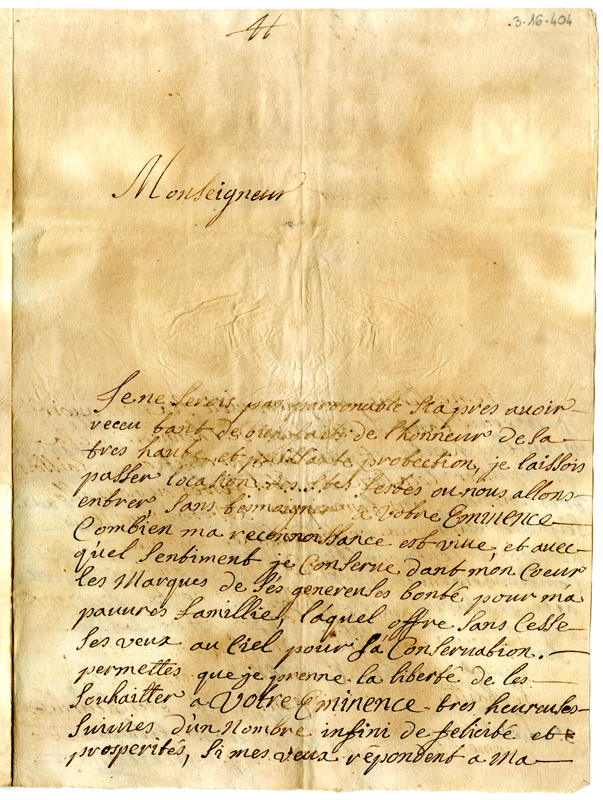 3-16-404
Monseigneur
Je ne serois pas pardonable si apres avoir
receu tant de bien faits de l'honneur de sa
tres haute et puissante protection, je laissois
passer location des stes festes ou nous allons
entrer, sans tesmoigner a Votre Eminence
Combien ma reconnoissance est viue, et avec
quel sentiment je Conserue dant mon Coeur
les Marques de ses genereuses bonté pour ma
pauures famillie, láquel offre sans Cesse
ses veux au Ciel pour sa Conseruation.
permettes que je prenne la liberté de les
souhaitter a Votre Eminence tres heureuses
suiuies d'un Nombre infini de felicité et
prosperités, si mes veux répondent a Ma